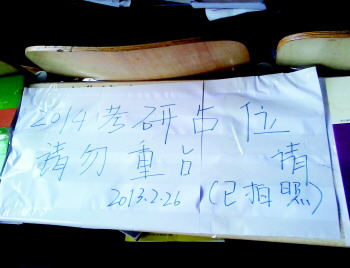 2014考研占位
请勿重占 请
2013.2.26 (已拍照)